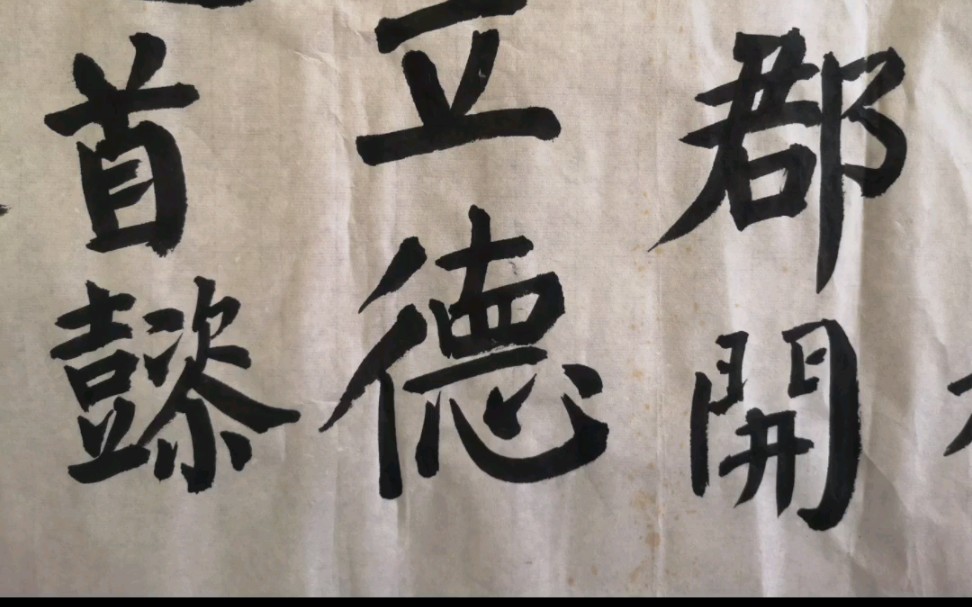 郡開
立德
首懿